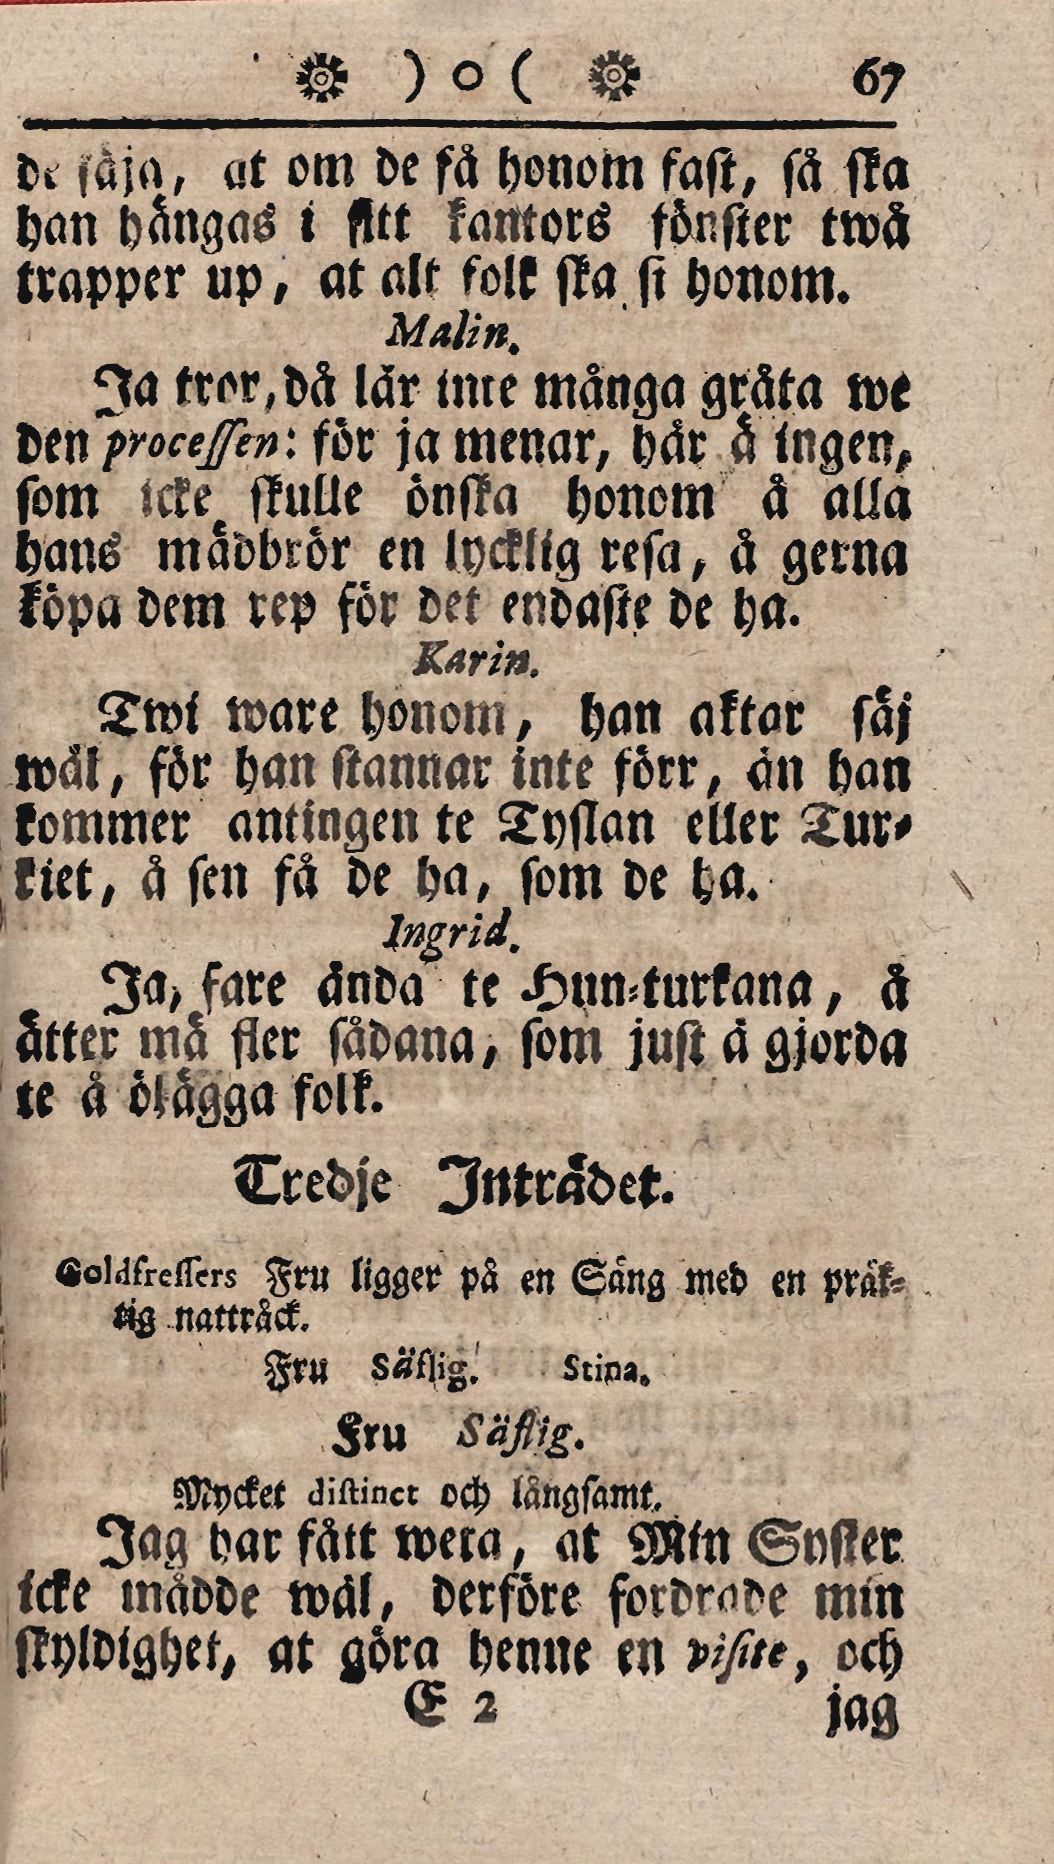 ) o ( 67
de säja, at om de få honom fast, så ska
han hängas i sitt kantors fönster twå
trapper up, at alt folk ska si honom.
Malin.
Ja tror, då lär inte många gråta we
den processen: för ja menar, här ä ingen,
som icke skulle önska honom å alla
hans mädbrör en lycklig resa, å gerna
köpa dem rep för det endaste de ha.
Karin.
Twi ware honom, han aktar säj
wäl, för han stannar inte förr, än han
kommer antingen te Tyslan eller Tur-
kiet, å sen få de ha, som de ha.
Ingrid.
Ja, fare ända te Hun-turkana, å
ätter mä fler sådana, som just ä gjorda
te å ölägga folk.
Tredje Inträdet.
Goldfressers Fru ligger på en Säng med en präk-
tig nattråck.
Fru Säflig. Stina.
Fru Säflig.
Mycket distinct och långsamt.
Jag har fått weta, at Min Syster
icke mådde wäl, derföre fordrade min
skyldighet, at göra henne en visite, och
E 2 jag